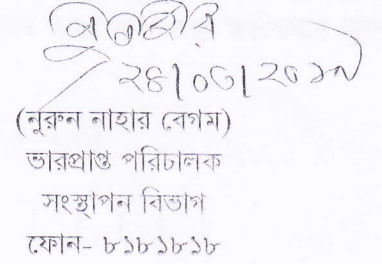 ২৪|০৩|২০১৯
(নুরুন নাহার বেগম)
ভারপ্রাপ্ত পরিচালক
সংস্থাপন বিভাগ
ফোন- ৮১৮১৮১৮